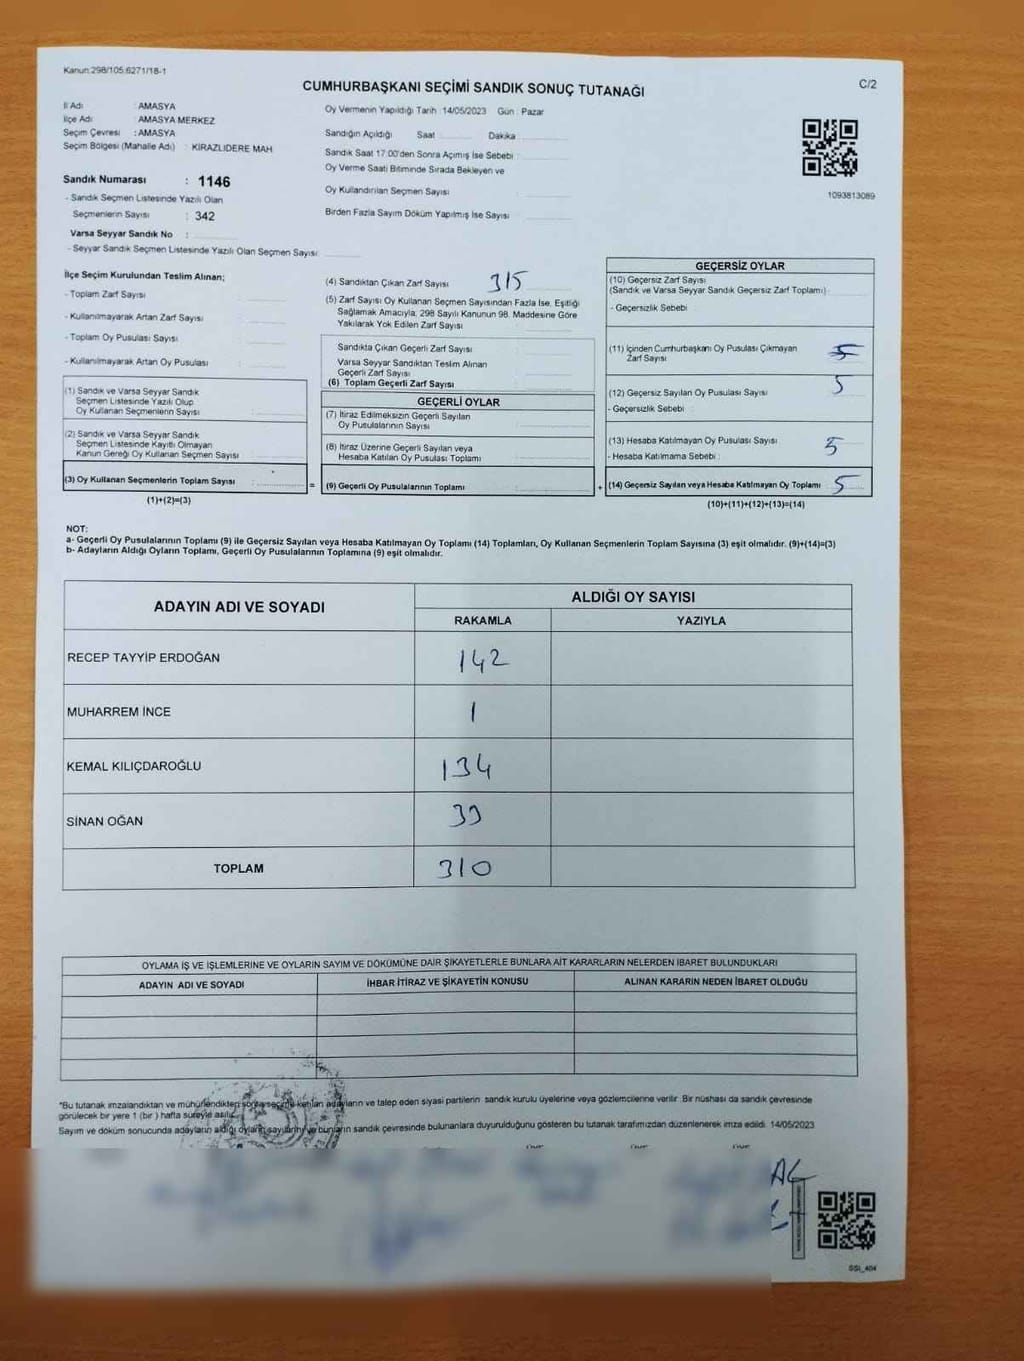 Kanun:298/105.6271/18-1
CUMHURBAŞKANI SEÇİMİ SANDIK SONUÇ TUTANAĞI
C/2
İl Adı : AMASYA
İlçe Adı : AMASYA MERKEZ
Seçim Çevresi : AMASYA
Seçim Bölgesi (Mahalle Adı) : KİRAZLIDERE MAH.
Oy Vermenin Yapıldığı Tarih :14/05/2023 Gün : Pazar
Sandığın Açıldığı Saat Dakika
Sandık Saat 17:00'den Sonra Açılmış İse Sebebi :
Oy Verme Saati Bitiminde Sırada Bekleyen ve
Oy Kullandırılan Seçmen Sayısı
Birden Fazla Sayım Döküm Yapılmış İse Sayısı
1093813089
Sandık Numarası : 1146
- Sandık Seçmen Listesinde Yazılı Olan
Seçmenlerin Sayısı : 342
Varsa Seyyar Sandık No :
- Seyyar Sandık Seçmen Listesinde Yazılı Olan Seçmen Sayısı:
İlçe Seçim Kurulundan Teslim Alınan;
- Toplam Zarf Sayısı :
- Kullanılmayarak Artan Zarf Sayısı :
- Toplam Oy Pusulası Sayısı :
- Kullanılmayarak Artan Oy Pusulası :
(1) Sandık ve Varsa Seyyar Sandık
Seçmen Listesinde Yazılı Olup
Oy Kullanan Seçmenlerin Sayısı :
(2) Sandık ve Varsa Seyyar Sandık
Seçmen Listesinde Kayıtlı Olmayan
Kanun Gereği Oy Kullanan Seçmen Sayısı :
(3) Oy Kullanan Seçmenlerin Toplam Sayısı :
(1)+(2)=(3)
(4) Sandıktan Çıkan Zarf Sayısı 315
(5) Zarf Sayısı Oy Kullanan Seçmen Sayısından Fazla İse, Eşitliği
Sağlamak Amacıyla, 298 Sayılı Kanunun 98. Maddesine Göre
Yakılarak Yok Edilen Zarf Sayısı
Sandıkta Çıkan Geçerli Zarf Sayısı
Varsa Seyyar Sandıktan Teslim Alınan
Geçerli Zarf Sayısı
(6) Toplam Geçerli Zarf Sayısı
GEÇERLİ OYLAR
(7) İtiraz Edilmeksizin Geçerli Sayılan
Oy Pusulalarının Sayısı
(8) İtiraz Üzerine Geçerli Sayılan veya
Hesaba Katılan Oy Pusulası Toplamı
= (9) Geçerli Oy Pusulalarının Toplamı +
GEÇERSİZ OYLAR
(10) Geçersiz Zarf Sayısı
(Sandık ve Varsa Seyyar Sandık Geçersiz Zarf Toplamı)
- Geçersizlik Sebebi
(11) İçinden Cumhurbaşkanı Oy Pusulası Çıkmayan
Zarf Sayısı 5
(12) Geçersiz Sayılan Oy Pusulası Sayısı 5
- Geçersizlik Sebebi :
(13) Hesaba Katılmayan Oy Pusulası Sayısı 5
- Hesaba Katılmama Sebebi :
(14) Geçersiz Sayılan veya Hesaba Katılmayan Oy Toplamı 5
(10)+(11)+(12)+(13)=(14)
NOT:
a- Geçerli Oy Pusulalarının Toplamı (9) ile Geçersiz Sayılan veya Hesaba Katılmayan Oy Toplamı (14) Toplamları, Oy Kullanan Seçmenlerin Toplam Sayısına (3) eşit olmalıdır. (9)+(14)=(3)
b- Adayların Aldığı Oyların Toplamı, Geçerli Oy Pusulalarının Toplamına (9) eşit olmalıdır.
ADAYIN ADI VE SOYADI
ALDIĞI OY SAYISI
RAKAMLA YAZIYLA
RECEP TAYYİP ERDOĞAN 142
MUHARREM İNCE 1
KEMAL KILIÇDAROĞLU 134
SİNAN OĞAN 33
TOPLAM 310
OYLAMA İŞ VE İŞLEMLERİNE VE OYLARIN SAYIM VE DÖKÜMÜNE DAİR ŞİKAYETLERLE BUNLARA AİT KARARLARIN NELERDEN İBARET BULUNDUKLARI
ADAYIN ADI VE SOYADI İHBAR İTİRAZ VE ŞİKAYETİN KONUSU ALINAN KARARIN NEDEN İBARET OLDUĞU
*Bu tutanak imzalandıktan ve mühürlendikten sonra seçime katılan adayların ve talep eden siyasi partilerin sandık kurulu üyelerine veya gözlemcilerine verilir. Bir nüshası da sandık çevresinde
görülecek bir yere 1 (bir ) hafta süreyle asılır.
Sayım ve döküm sonucunda adayların aldığı oyların sayılarını ve bunların sandık çevresinde bulunanlara duyurulduğunu gösteren bu tutanak tarafımızdan düzenlenerek imza edildi. 14/05/2023
SSI_404